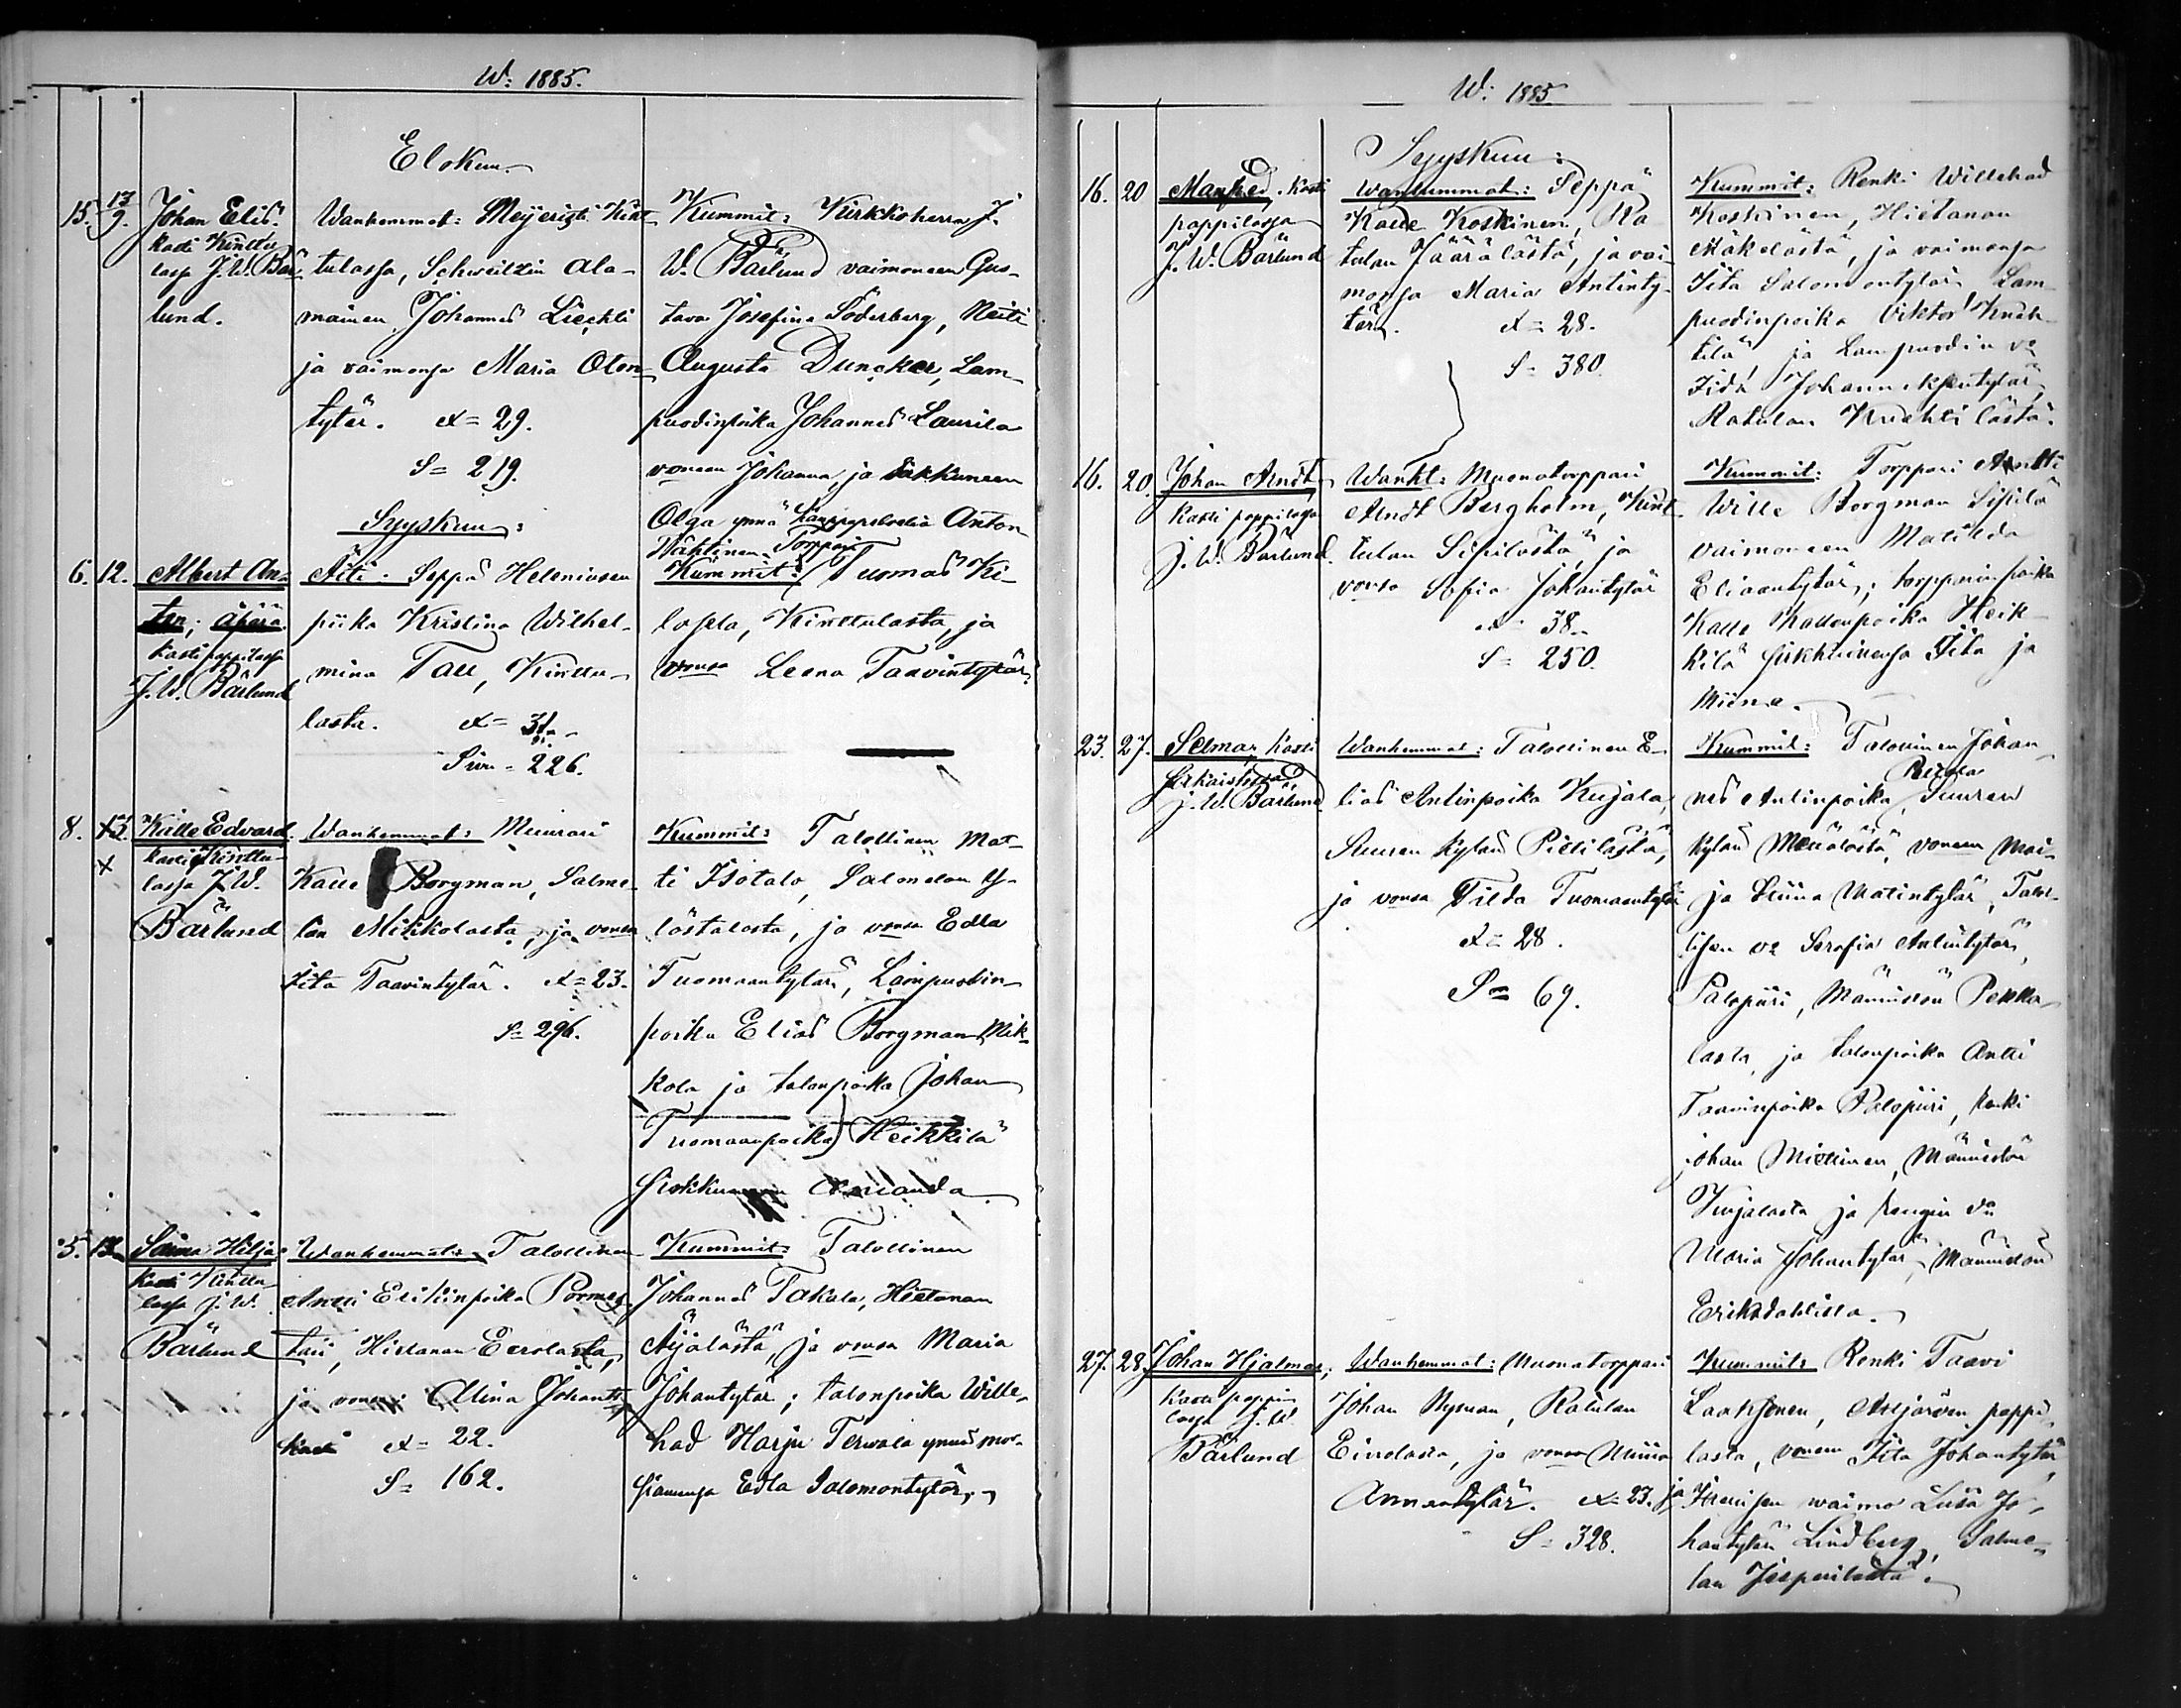 W: 1885.
Elokuu
15. 13/9. Johan Elis.
kasti Kinttu-
lassa J. W. Bär-
lund.
Wanhemmat: Meijeristi Kint-
tulassa, Schweitzin ala-
mainen Johannes Liechti
ja vaimonsa Maria Olon-
tytär. x = 29.
S = 219.
Kummit: Kirkkoherra J.
W. Bärlund vaimoneen Gus-
tava Josefina Söderberg, Neiti
Augusta Duncker, Lam-
puodinpoika Johannes Laurila
voneen Johanna, ja
Olga ynnä Anton
Syyskuu:
6. 12. Albert An-
ton; äpärä
kasti pappilassa
J. W. Bärlund
Äiti: Seppä Heleniusen
piika Kristina Wilhel-
mina Tall, Kinttu-
lasta. x = 31.
Siv. = 226.
Kummit: Torppari Tuomas Ki-
, Kinttulasta, ja
vonsa Leena Taavintytär
8. Kalle Edvard
kasti Kinttu-
lassa J. W.
Bärlund
Wanhemmat: Muurari
Kalle Borgman, Salme-
lan Mikkolasta, ja vonsa
Iita Taavintytär. x = 23.
S = 296.
Kummit: Talollinen Mat-
ti Isotalo, Salmelan Y-
löstalosta, ja vonsa Edla
Tuomaantytär, Lampuodin-
poika Elias Borgman Mik-
kola ja talonpoika Johan
Tuomaanpoika Heikkilä
Amanda
5. 13. Saima Hilja
kasti Kinttu-
lassa J. W.
Bärlund
Wanhemmat: Talollinen
Antti Erikinpoika Pormes-
tari, Hietanan Eerolasta,
ja vonsa: Miina Johant:
x = 22.
S = 162.
Kummit: Talollinen
Johannes Takala, Hietanan
Äijälästä, ja vonsa Maria
Johantytär; talonpoika Wille-
had Harju Terwala ynnä mor-
siamensa Edla Salomontytär.
W: 1885
Syyskuu:
16. 20 Manfred. Kasti
pappilassa
J. W. Bärlund
Wanhemmat: Seppä
Kalle Koskinen, Ra-
tulan Jäärälästä, ja vai-
monsa Maria Antinty-
tär. x = 28.
S = 380.
Kummit: Renki Willehad
Koskinen, Hietanan
Mäkelästä, ja vaimonsa
Iita Salomontytär, Lam-
puodinpoika Viktor Kneh-
tilä, ja Lampuodin vo
Iida Johanneksentytär,
Ratulan Knehtilästä.
16. 20. Johan Arndt,
Kasti pappilassa
J. W. Bärlund.
Wanht: Muonatorppari
Arndt Bergholm, Kint-
tulan Sipilästä, ja
vonsa Sofia Johantytär
x = 38.
S = 250.
Kummit: Torppari Antti
Wille Borgman Sipilä
vaimoneen Matilda
Eliaantytär; torpparinpoika
Kalle Kallenpoika Heik-
kilä Iita ja
Miina.
23. 27. Selma, Kasti
J. W. Bärlund.
Wanhemmat: Talollinen E-
lias Antinpoika Kujala,
Suuren kylän Pietilästä,
ja vonsa Tilda Tuomaantytär
x = 28.
S = 69.
Kummit: Talollinen Johan-
nes Antinpoika Suuren
kylän voneen Mai-
ja Stiina Matintytär, Talol-
lisen vo Serafia Antintytär,
Palopiiri, Männistön Pekka-
lasta, ja talonpoika Antti
Taavinpoika Palopiiri, renki
Johan Miettinen, Männistön
Kujalasta ja rengin vo
Maria Johantytär, Männistön
27. 28. Johan Hjalmar;
Kasti pappi-
lassa J. W.
Bärlund
Wanhemmat: Muonatorppari
Johan Nyman, Ratulan
Einolasta, ja vonsa Miina
Annantytär. x = 23.
S = 328.
Kummit: Renki Taavi
Laaksonen, Asjärven pappi-
lasta, voneen Iita Johantytär
ja Itsenisen waimo Liisa Jo-
hantytär Lindberg, Salme-
lan Jesperilästä.